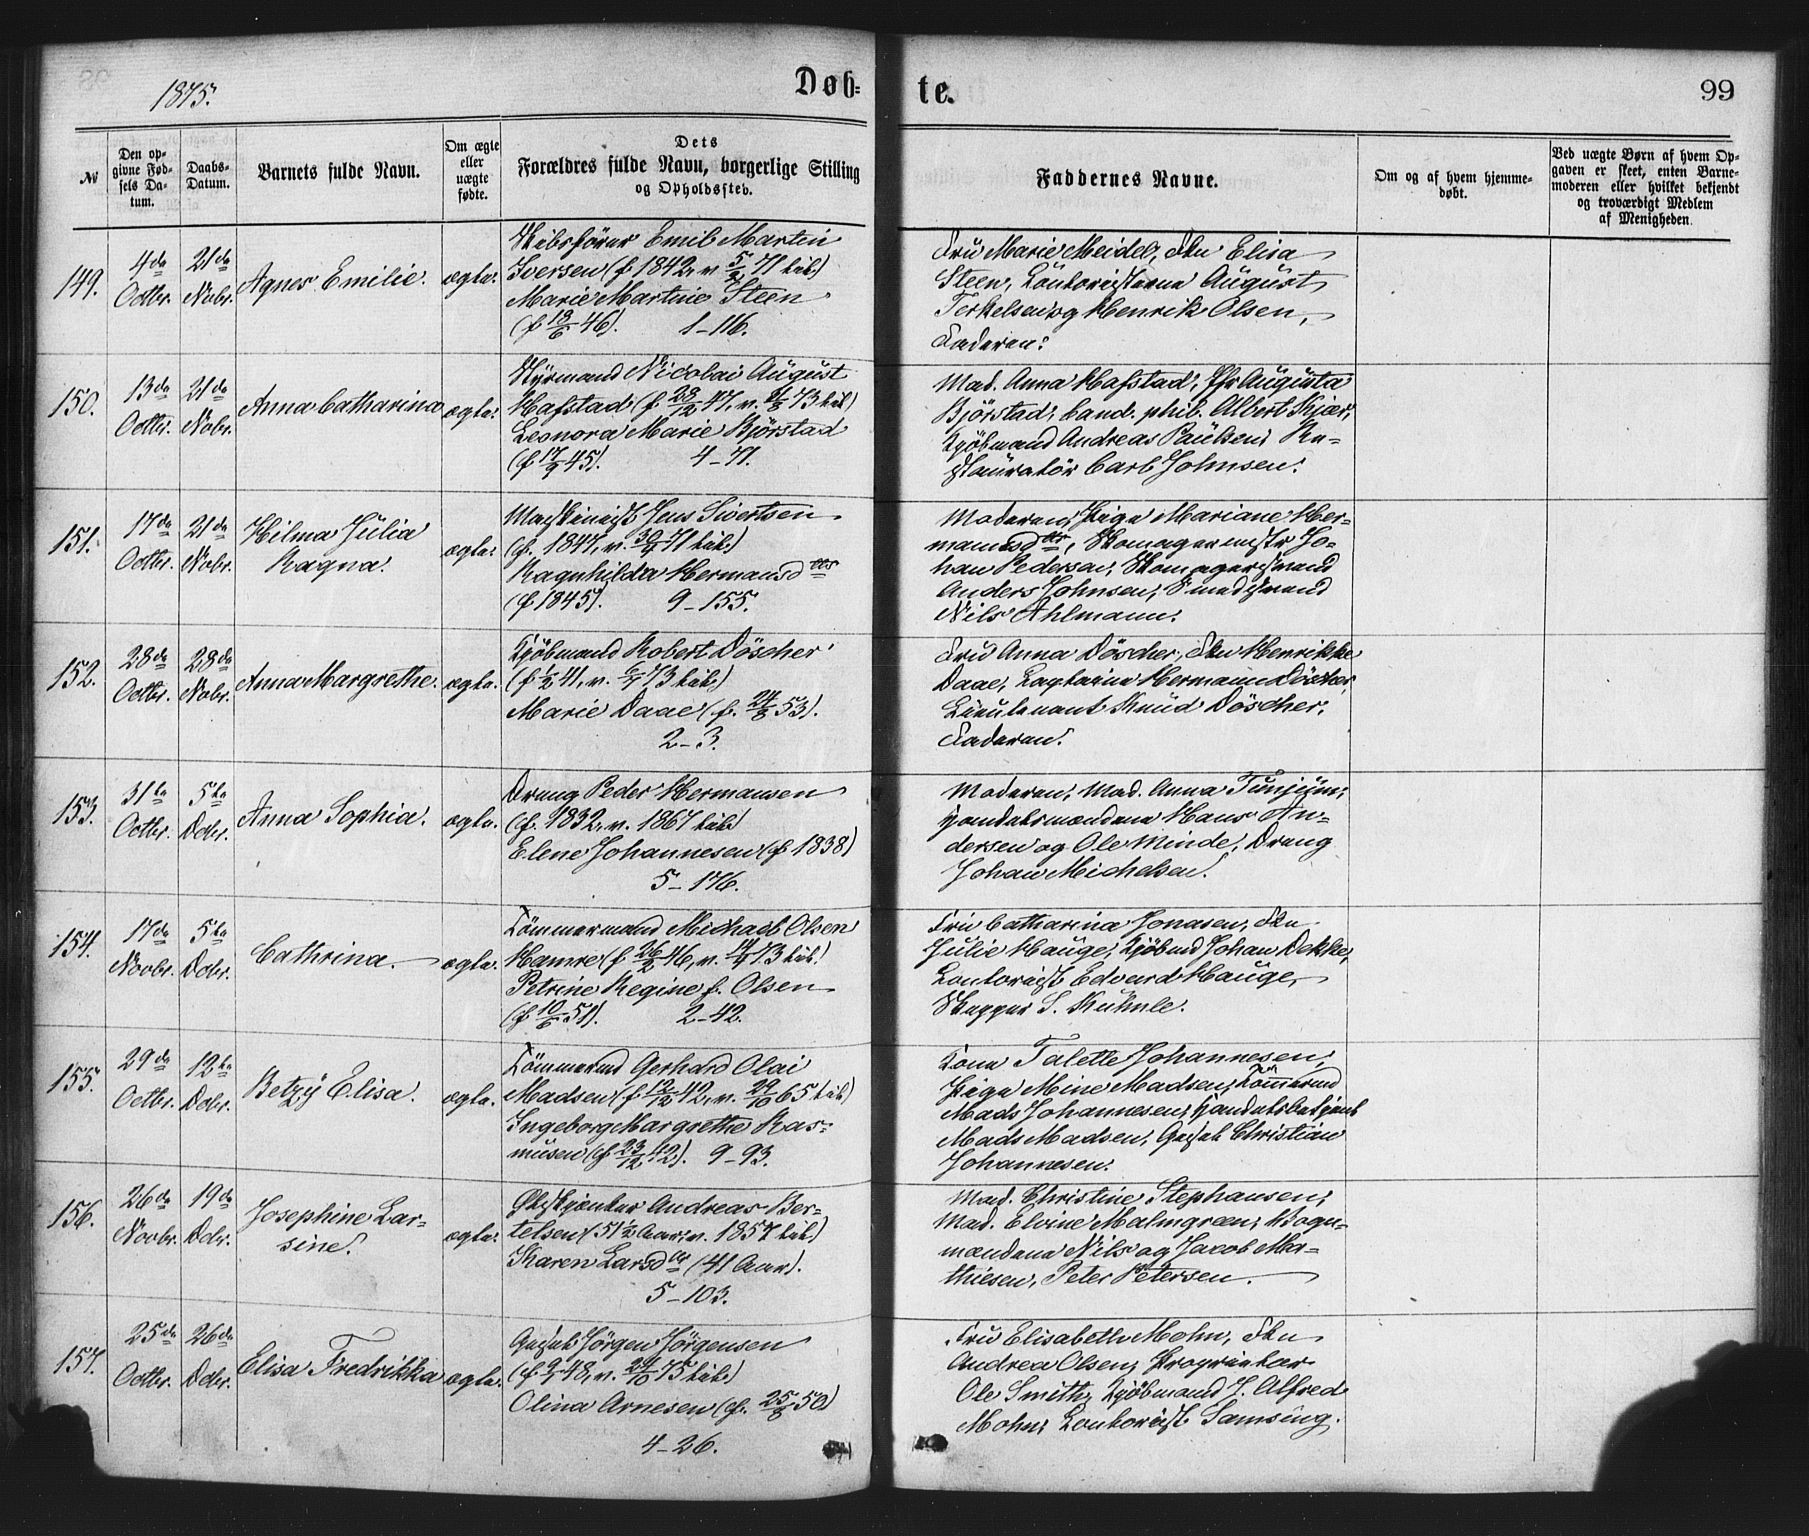 1875.
Døb-
te.
99
№
Den op-
givne Fød-
sels Da-
tum.
Daabs-
Datum.
Barnets fulde Navn.
Om ægte
eller
uægte
fødte.
Dets
Forældres fulde Navn, borgerlige Stilling
og Opholdssted.
Faddernes Navne.
Om og af hvem hjemme-
døbt.
Ved uægte Børn af hvem Op-
gaven er skeet, enten Barne-
moderen eller hvilket bekjendt
og troværdigt Medlem
af Menigheden.
149.
4de
Octbr.
21de
Nobr.
Agnes Emilie.
ægte.
Skibsfører Emil Martin
Iversen (f 1842, v. 5/2 71 her)
Marie Martine Steen
(f 13/6 46). 1-116.
Fru Marie Meidel, Frk Elisa
Steen, Contoristerne August
Terkelsen og Henrik Olsen,
Faderen.
150.
13de
Octbr.
21de
Nobr.
Anna Catharina
ægte.
Styrmand Nicolai August
Hafstad (f. 28/12 47, v. 73 her)
Leonora Marie Bjørstad
(f 17/9 45). 4-71.
Mad. Anna Hafstad, Jfr Augusta
Bjørstad, Cand. phil. Albert Kjær,
Kjøbmand Andreas Paulsen, Re-
stauratør Carl Johnsen.
151.
17de
Octbr.
21de
Nobr.
Hilma Julia
Ragna.
ægte.
Maskinist Jens Sivertsen
(f. 1847, v. 30/4 71 her)
Ragnhilda Hermansdtr
(f 1845). 9-155.
Moderen, Pige Mariane Her-
mansdtr, Skomagermstr Jo-
han Pedersen, Skomagersvend
Anders Johnsen, Smedsvend
Nils Ahlmann.
152.
28de
Octbr.
28de
Nobr.
Anna Margrethe.
ægte.
Kjøbmand Robert Döscher
(f 1/2 41, v. 73 her)
Marie Daae (f. 24/8 53).
2-3.
Fru Anna Döscher, Frk Henrikke
Daae, Hermann Döscher,
Lieutenant Knud Döscher,
Faderen.
153.
31te
Octbr.
5te
Dcbr.
Anna Sophia.
ægte.
Dreng Peder Hermansen
(f. 1832, v. 1867 her)
Elene Johannesen (f 1838)
5-176.
Moderen, Mad. Anna
Hans An-
dersen og Ole Minde, Dreng
Johan Michelsen.
154.
17de
Novbr.
5te
Dcbr.
Cathrina.
ægte.
Tømmermand Michael Olsen
Hamre (f 26/2 46, v. 73 her)
Petrine Regine f. Olsen
(f 10/6 51). 2-42.
Fru Catharina Jonasen, Frk
Julie Hauge, Kjøbmd Johan Dekke,
Contorist Edvard Hauge,
Skipper S. Kuhnle.
155.
29de
Octbr.
12te
Dcbr.
Betzy Elisa.
ægte.
Tømmermd Gerhard Olai
Madsen (f 12/12 42, v. 29/10 65 her)
Ingeborg Margrethe Ras-
musen (f 23/12 42). 9-93.
Kone Talette Johannesen,
Pige Mine Madsen, Tømmermd
Mads Johannesen, Handelsbetjent
Mads Madsen, Christian
Johannesen.
156.
26de
Novbr.
19de
Dcbr.
Josephine Lar-
sine.
ægte.
Ølskjænker Andreas Ber-
telsen (51 1/2 Aar, v. 1857 her)
Karen Larsdtr (41 Aar).
5-103.
Mad. Christine Stephansen,
Mad. Elvine Malmgren, Vogn-
mændene Nils og Jacob Mat-
thiesen, Peter Petersen.
157.
25de
Octbr.
26de
Dcbr.
Elisa Fredrikka
ægte.
Jørgen Jørgensen
(f 48, v. 24/10 75 her)
Olina Arnesen (f. 25/8 50)
4-26.
Fru Elisabeth Mohn, Frk
Andrea Olsen, Proprietær
Ole Smith, Kjøbmand J. Alfred
Mohn, Contorist Samsing.